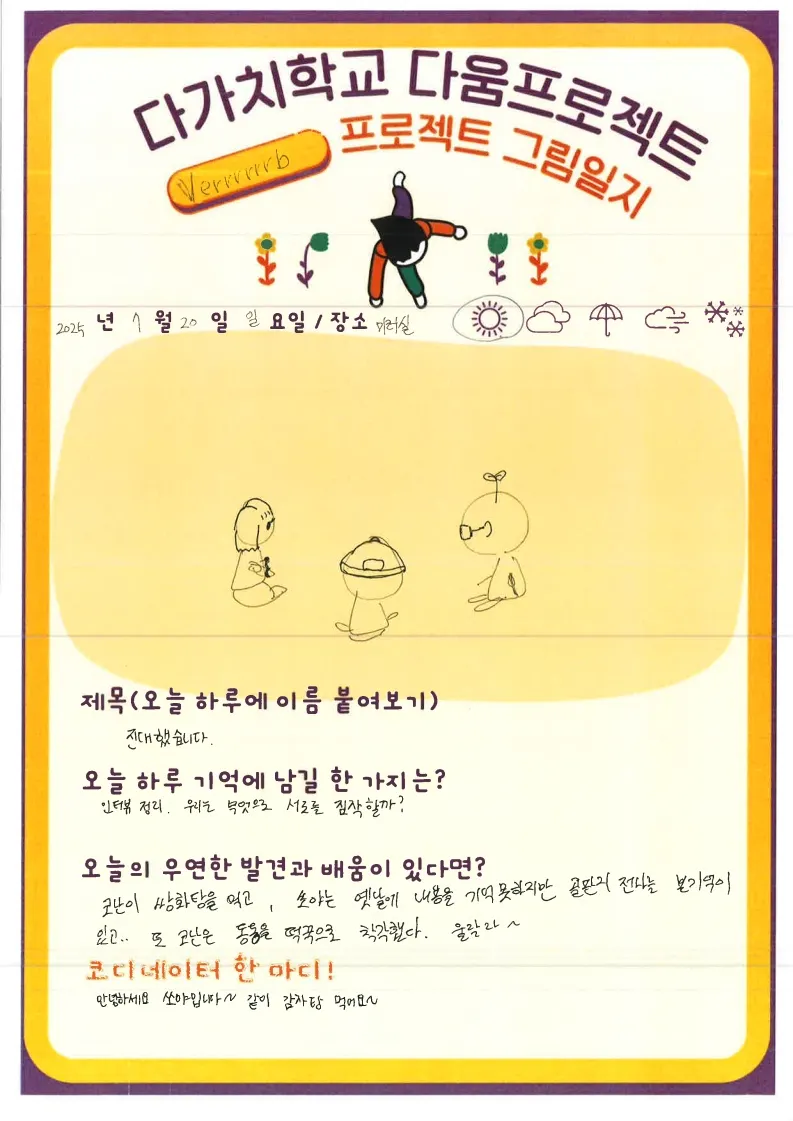 다가치학교 다움프로젝트
프로젝트 그림일지
Verrrrrrb
2025 년 1 월 20 일 일 요일 / 장소 미러실
제목(오늘 하루에 이름 붙여보기)
진대했습니다.
오늘 하루 기억에 남길 한 가지는?
인터뷰 정리. 우리는 무엇으로 서로를 짐작할까?
오늘의 우연한 발견과 배움이 있다면?
코난이 쌍화탕을 먹고, 쏘야는 옛날에 내용을 기억못하지만 골판지 전사는 본기억이
있고.. 또 코난은 동동을 떡국으로 착각했다. 울랄라~
코디네이터 한 마디!
안녕하세요 쏘야입니다~ 같이 감자탕 먹어요~